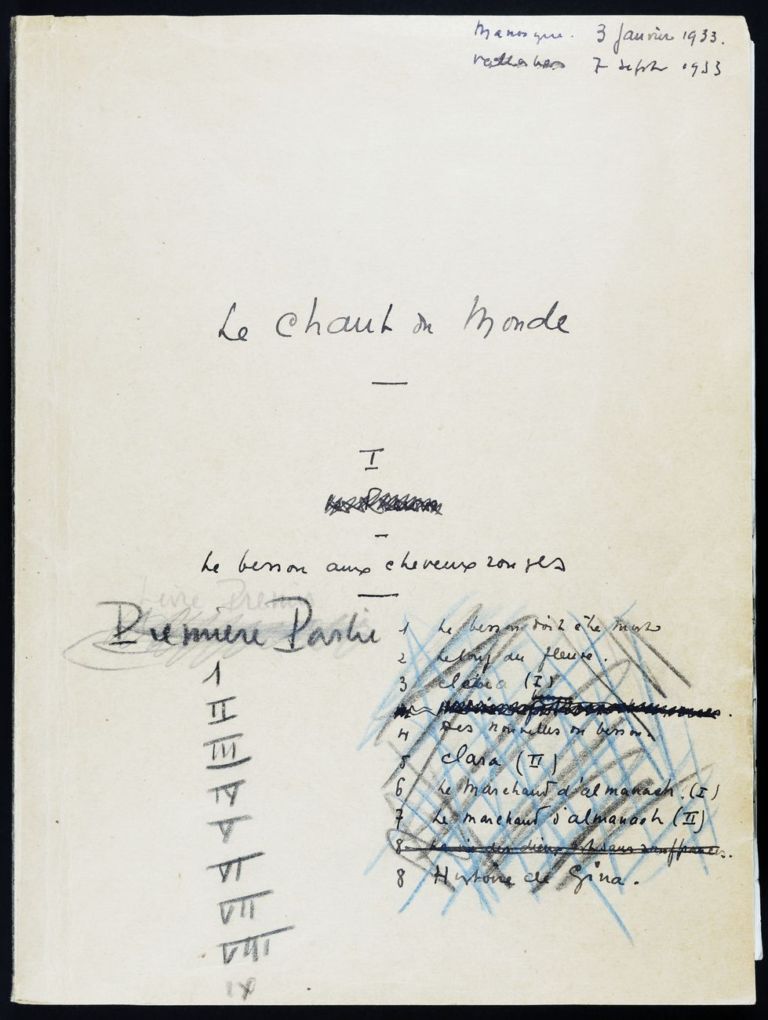 Manosque. 3 Janvier 1933.
7 Septbre 1933
Le Chant du Monde
I
Le besson aux cheveux rouges
Livre Premier
Première Partie
1
II
III
IV
V
VI
VII
VIII
IX
1 Le besson doit être mort
2 Le long du fleuve.
3 clara (I)
4 Des nouvelles du besson
5 clara (II)
6 Le marchand d'almanach. (I)
7 Le marchand d'almanach (II)
8
8 Histoire de Gina.